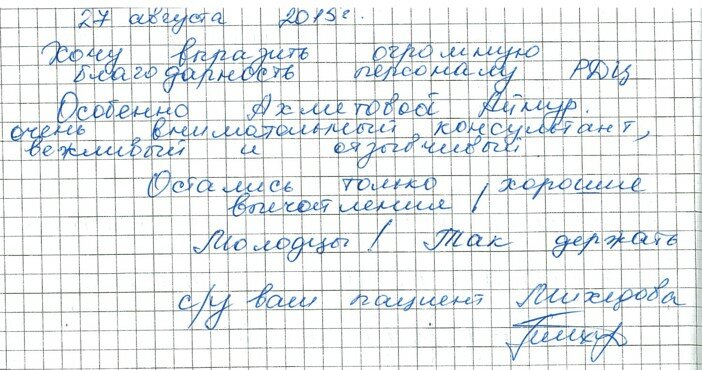 27 августа 2015г.
Хочу выразить огромную
благодарность персоналу РДЦ
Особенно Ахметовой Аймур.
очень внимательный консультант,
вежливый и отзывчивый
Остались только хорошие
впечатления!
Молодцы! Так держать
с/у ваш пациент